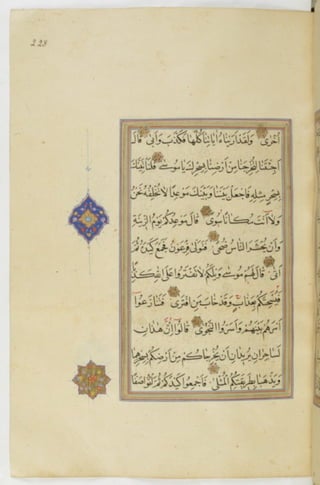 228
أخرى ولقد أريناه آياتنا كلها فكذب وأبى قال
أجئتنا لتخرجنا من أرضنا بسحرك يا موسى فلنأتينك
بسحر مثله فاجعل بيننا وبينك موعدا لا نخلفه نحن
ولا أنت مكانا سوى قال موعدكم يوم الزينة
وأن يحشر الناس ضحى فتولى فرعون فجمع كيده ثم
أتى قال لهم موسى ويلكم لا تفتروا على الله كذبا
فيسحتكم بعذاب وقد خاب من افترى فتنازعوا
أمرهم بينهم وأسروا النجوى قالوا إن هذان
لساحران يريدان أن يخرجاكم من أرضكم بسحرهما
ويذهبا بطريقتكم المثلى فأجمعوا كيدكم ثم ائتوا صفا